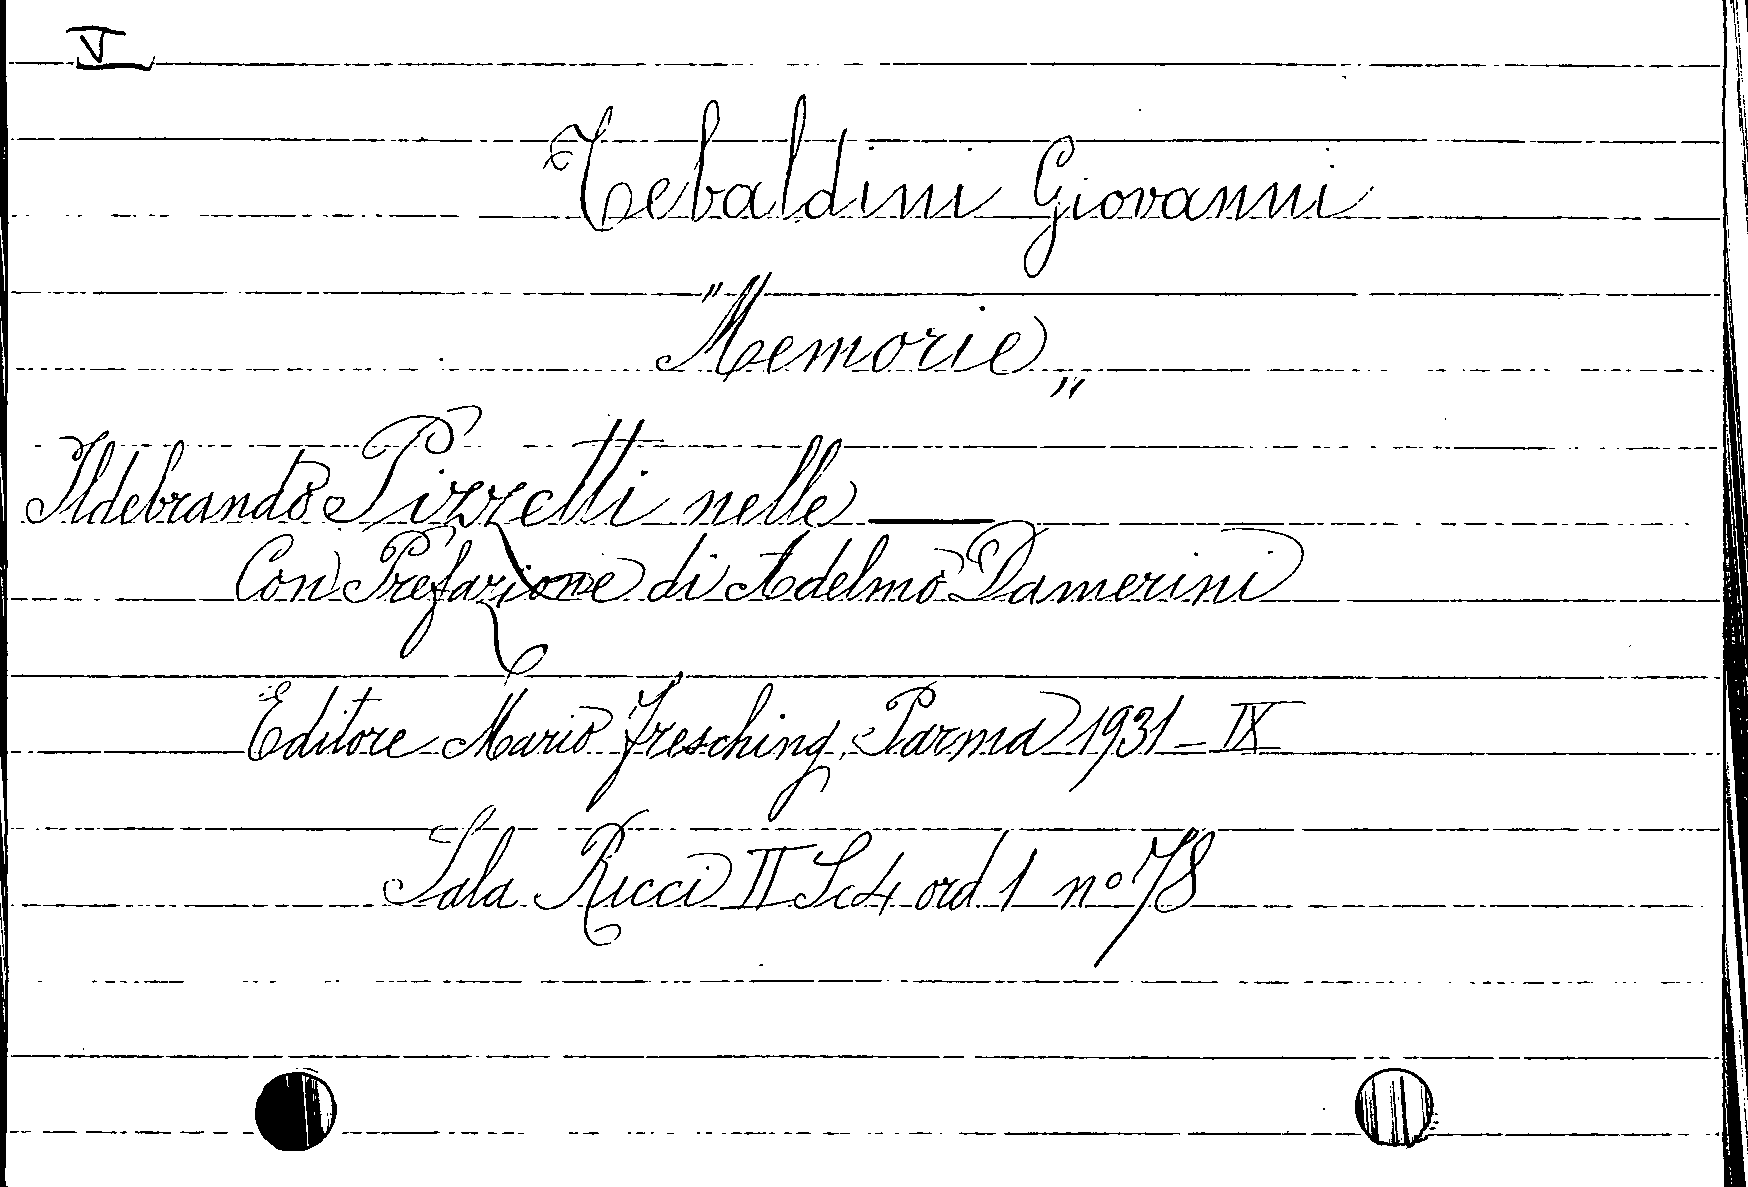 V
Tebaldini Giovanni
"Memorie„
Ildebrando Pizzetti nelle ——
Con Prefazione di Adelmo Damerini
Editore Mario Fresching, Parma 1931 - IX
Sala Ricci II Sc4 ord 1 nº 78